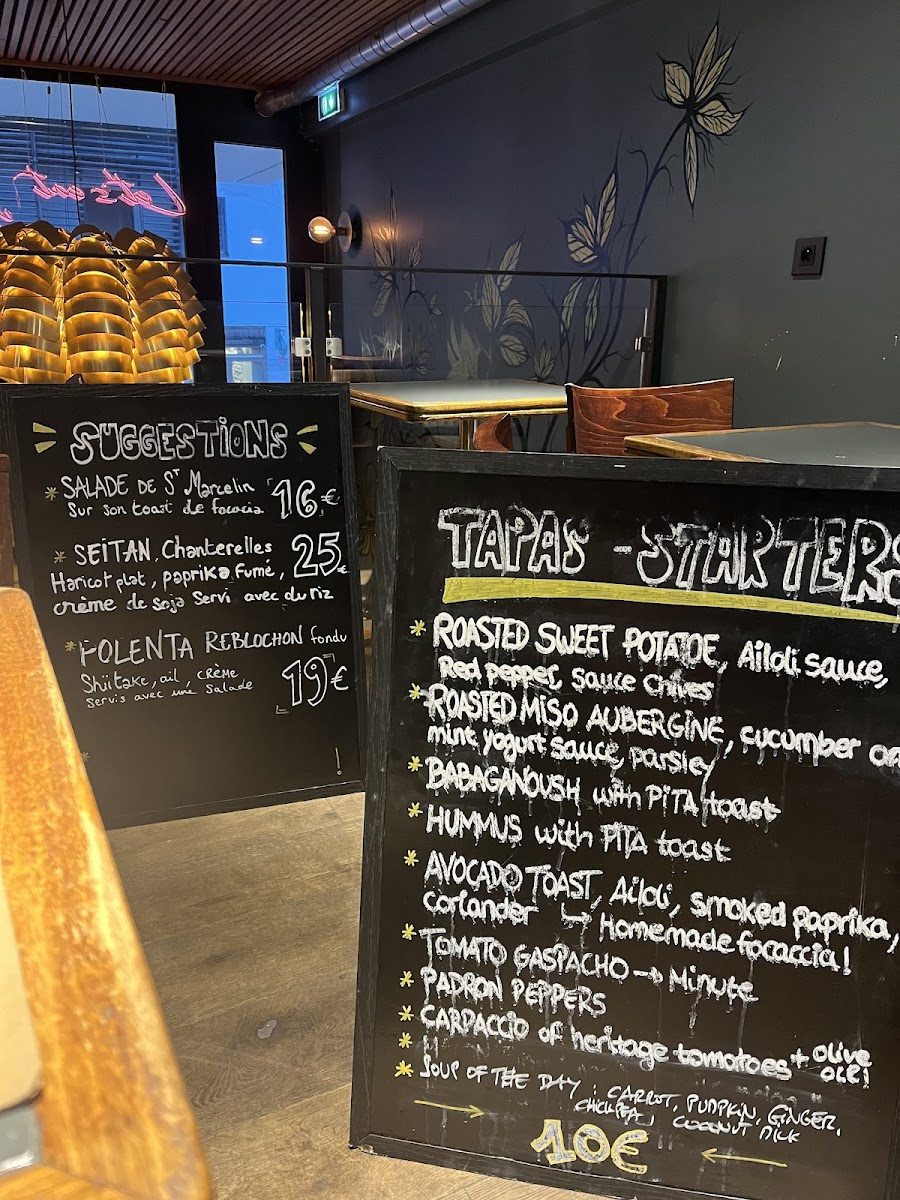 Let's eat
SUGGESTIONS
SALADE DE St Marcelin 16€
Sur son toast de fococia
SEITAN, Chanterelles 25€
Haricot plat, paprika Fumé,
crème de soja Servi avec du riz
POLENTA REBLOCHON fondu
Shiitake, ail, crème 19€
servis avec une salade
TAPAS - STARTERS
ROASTED SWEET POTATOE, Ailoli sauce,
Red pepper, Sauce Chives
ROASTED MISO AUBERGINE, cucumber
mint yogurt sauce, parsley
BABAGANOUSH with PiTA toast
HUMMUS with PITA toast
AVOCADO TOAST, Ailoli, smoked paprika,
coriander ↳ Homemade focaccia!
TOMATO GASPACHO → Minute
PADRON PEPPERS
CARPACCIO of heritage tomatoes + olive
OIL!
SOUP OF THE DAY : CARROT, PUMPKIN, GINGER,
CHICKPEA, COCONUT MILK
10€